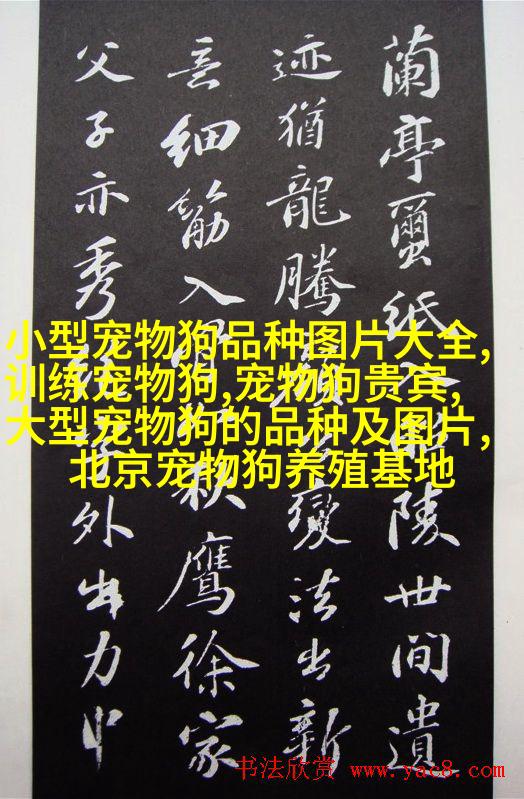 蘭亭蠒紙入陵世間遺
迹猶龍騰變法出新
意細筋入秋鷹徐家
父子亦秀外出力中
小型宠物狗品种图片大全,
训练宠物狗,宠物狗贵宾,
大型宠物狗的品种及图片,
北京宠物狗养殖基地
书法欣赏 www.yac8.com